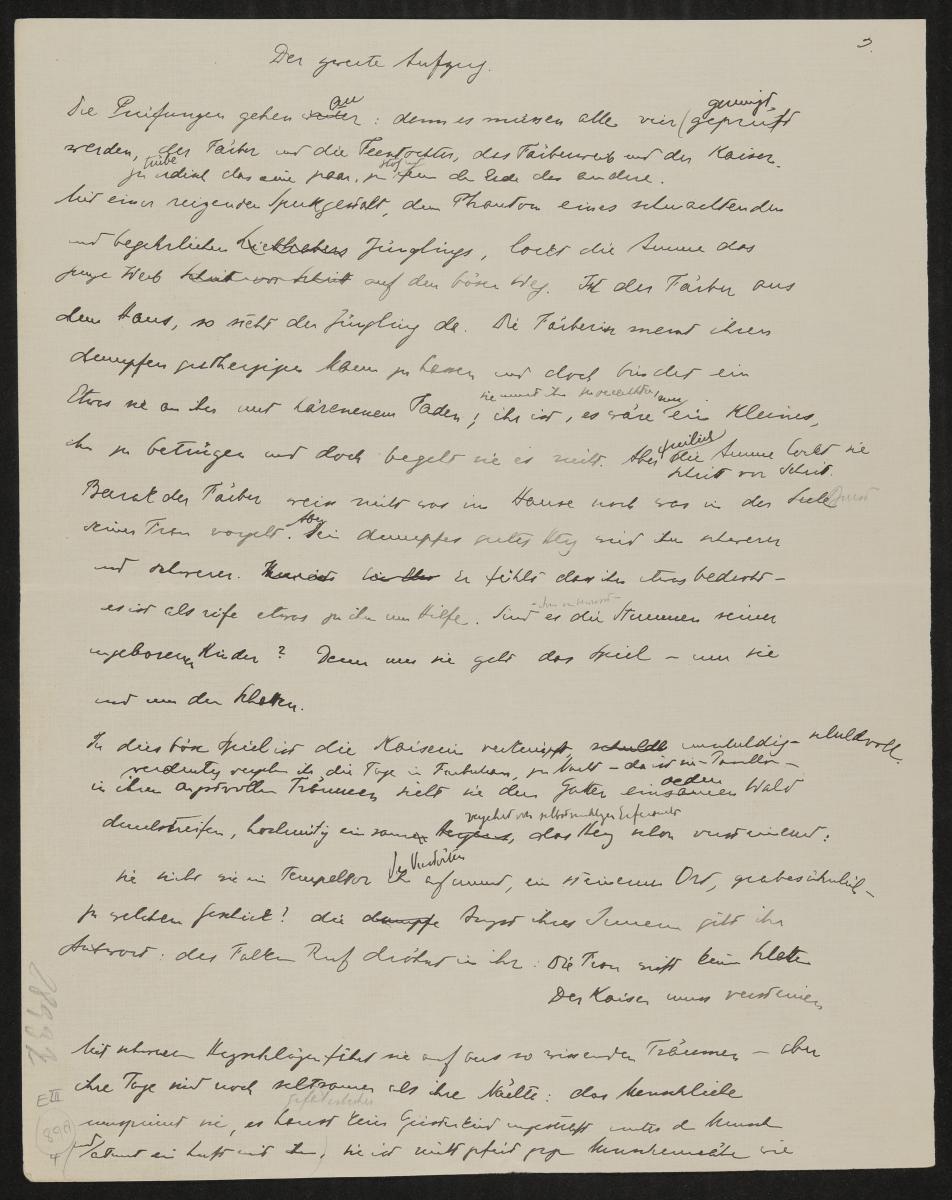 3.
Der zweite Aufzug.
Die Prüfungen gehen weiter an : denn es müssen alle vier (gereinigt geprüft
werden, der Färber und die Feentochter, das Färberweib und der Kaiser.
zu irdisch das eine paar, zu fern der Erde das andere.
trübe
Mit einer reizenden Spukgestalt, dem Phantom eines schmachtenden
und begehrlichen Liebhabers Jünglings, lockt die Amme das
junge Weib Schritt vor Schritt auf den bösen Weg. Ist der Färber aus
dem Haus, so steht der Jüngling da. Die Färberin meint ihren
dumpfen gutherzigen Mann zu hassen und doch bindet ein
sie meint ihn zu verachten,
Etwas sie an ihn mit härenenem Faden; ihr ist, es wäre nur ein Kleines,
ihn zu betrügen und doch begeht sie es nicht. Aber freilich die Amme lockt sie
Schritt vor Schritt.
Barak der Färber weiss nicht was im Hause noch was in der Seele
seiner Frau vorgeht. Aber Sein dumpfes gutes Herz wird ihm schwerer
und schwerer. Er fühlt dass ihn etwas bedroht –
es ist als rife etwas zu ihm um Hilfe. Sind es die Stimmen seiner
ungeborenen Kinder? Denn um sie geht das Spiel – um sie
und um den Schatten.
In dies böse Spiel ist die Kaiserin verknüpft, schuldl unschuldig – schuldvoll.
vergehn ihr die Tage im Färberhaus, zu Nacht – da ist sie im –
in ihren angstvollen Träumen sieht sie den Gatten einsamen oeden Wald
durchstreifen, hochmütig einsamen verzehrt von selbstsüchtiger Eifersucht
, das Herz schon versteinernd:
sie sieht wie ein Tempeltor ihn aufnimmt, ein steinerner Ort, grabesähnlich –
zu welchem Geschick? die dumpfe Angst ihres Innern gibt ihr
Antwort: des Falken Ruf dröhnt in ihr: Die Frau wirft keinen Schatten
Der Kaiser muss versteinen
Mit schweren Herzschlägen fährt sie auf aus so wissenden Träumen – aber
ihre Tage sind noch seltsamer als ihre Nächte: das Menschliche
umspinnt sie, es haust kein Geisterkind ungestraft unter den Menschen
und atmet ein Luft mit ihnen) sie ist nicht gefeit gegen Menschennähe wie
28932
E III
89